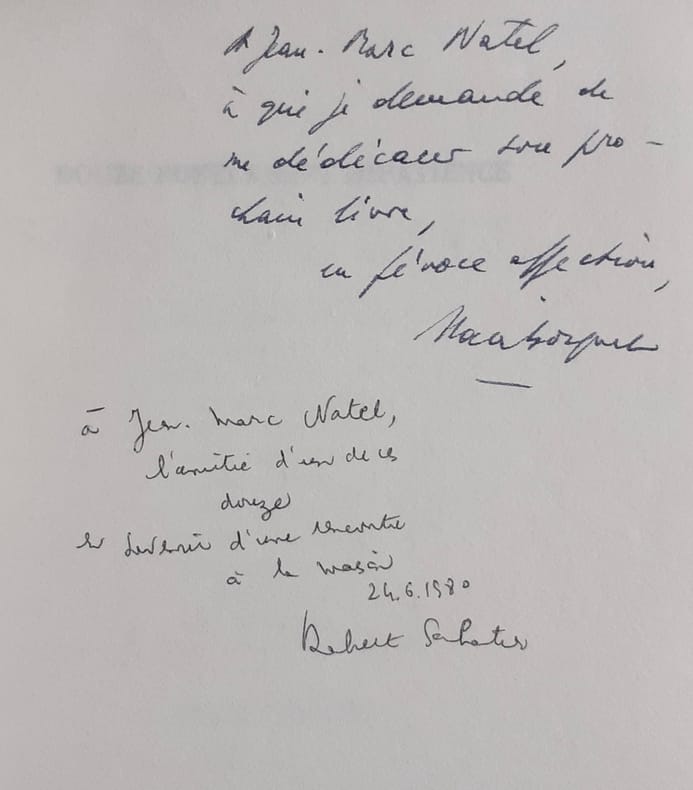 A Jean-Marc Natel,
à qui je demande de
me dédicacer son pro-
chain livre,
en féroce affection,
à Jean-Marc Natel,
l'amitié d'un de ces
douze
en souvenir d'une rencontre
à la maison
24.6.1980
Robert Sabatier